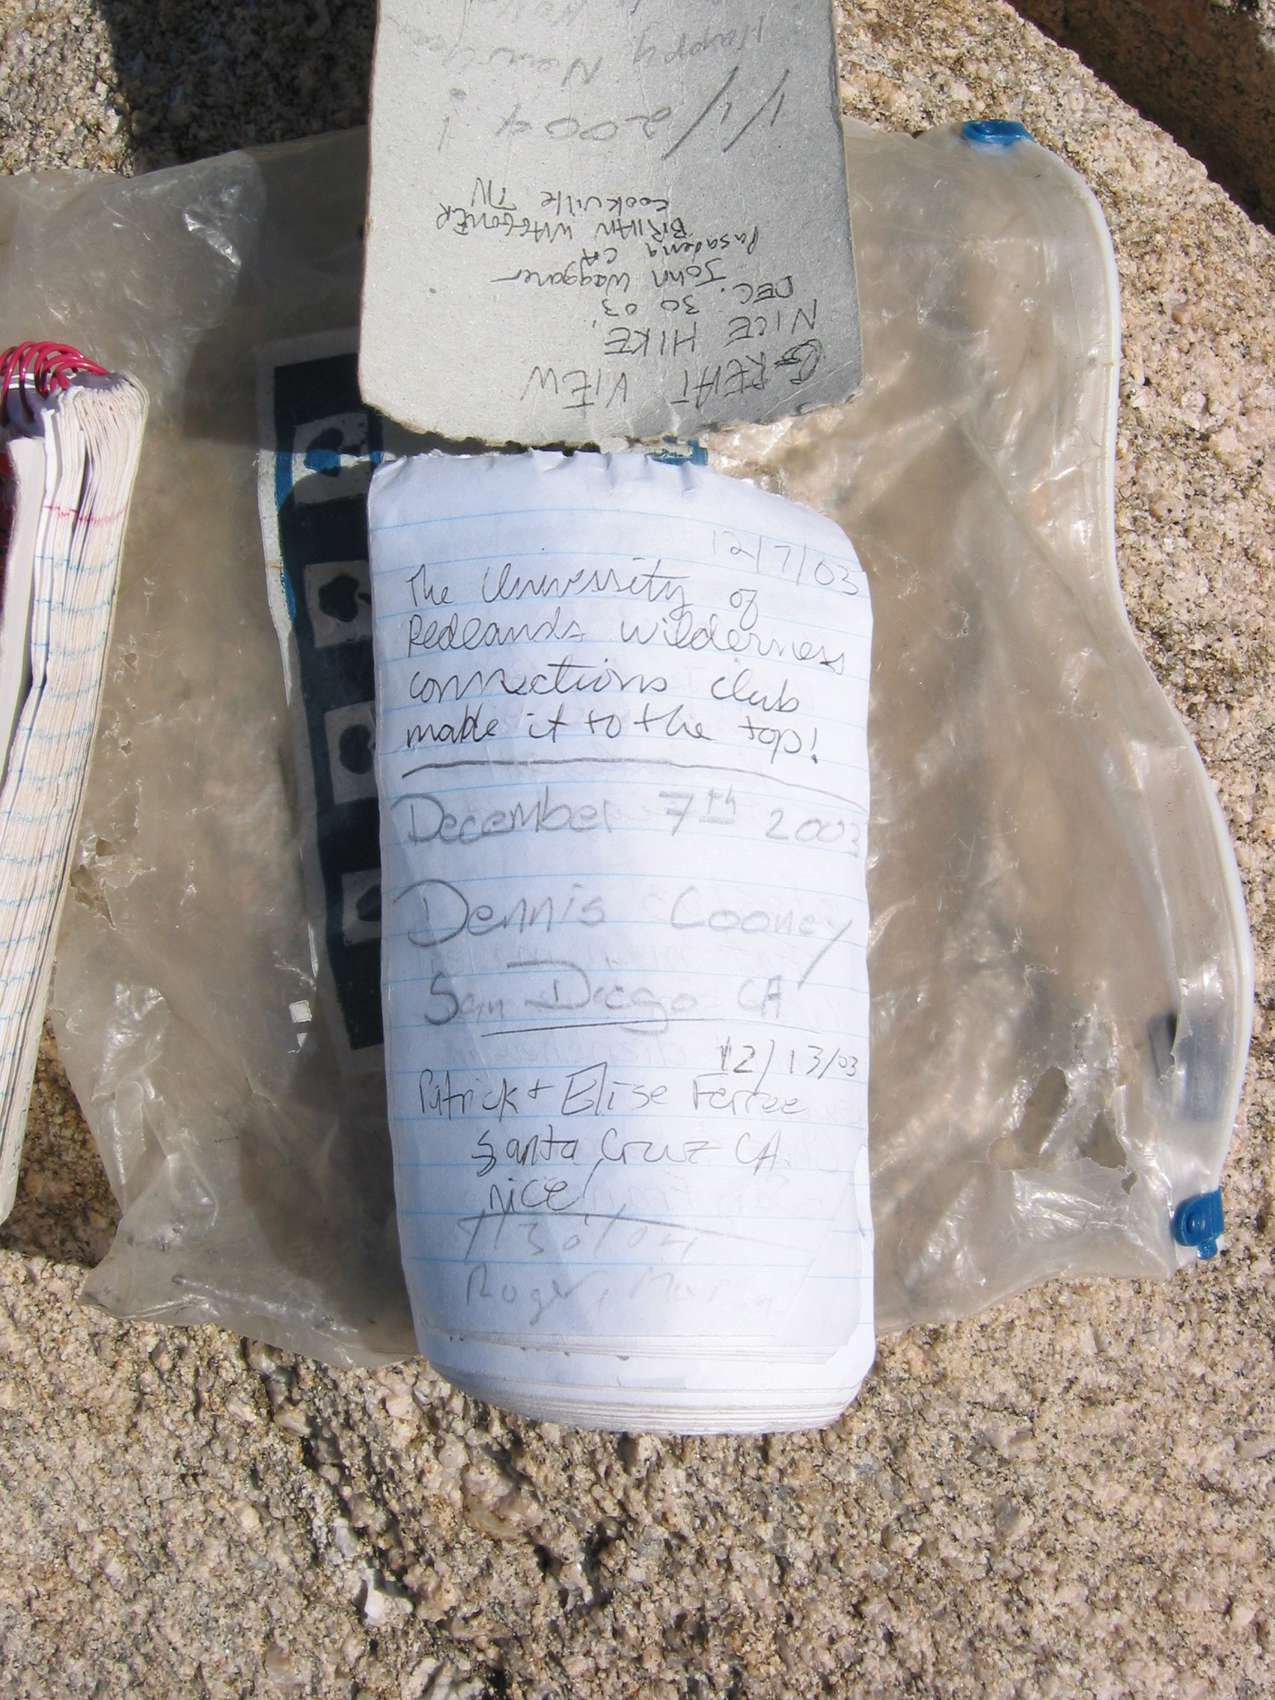 GREAT VIEW
NICE HIKE,
DEC. 30 03
John Waggoner
Pasadena CA
BRIAN WAGGONER
Cookville TN
1/1/2004!
Happy New
12/7/03
The University of
Redlands wilderness
connections club
made it to the top!
December 7th 2003
Dennis Cooney
San Diego CA
12/13/03
Patrick + Elise Ferree
Santa Cruz CA.
nice!
Roger,